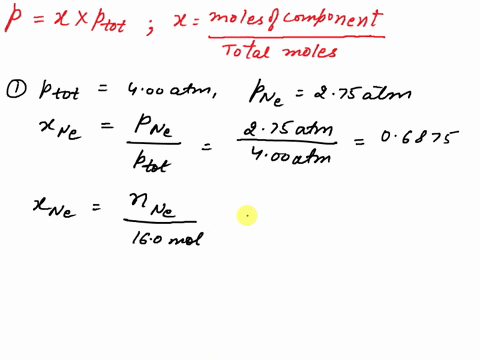 p = x × ptot ; x = moles of component / Total moles
① ptot = 4.00 atm, pNe = 2.75 atm
xNe = pNe / ptot = 2.75 atm / 4.00 atm = 0.6875
xNe = nNe / 16.0 mol